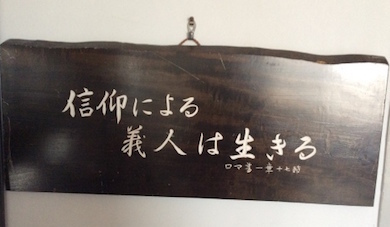 信仰による
義人は生きる
ロマ書一章十七節